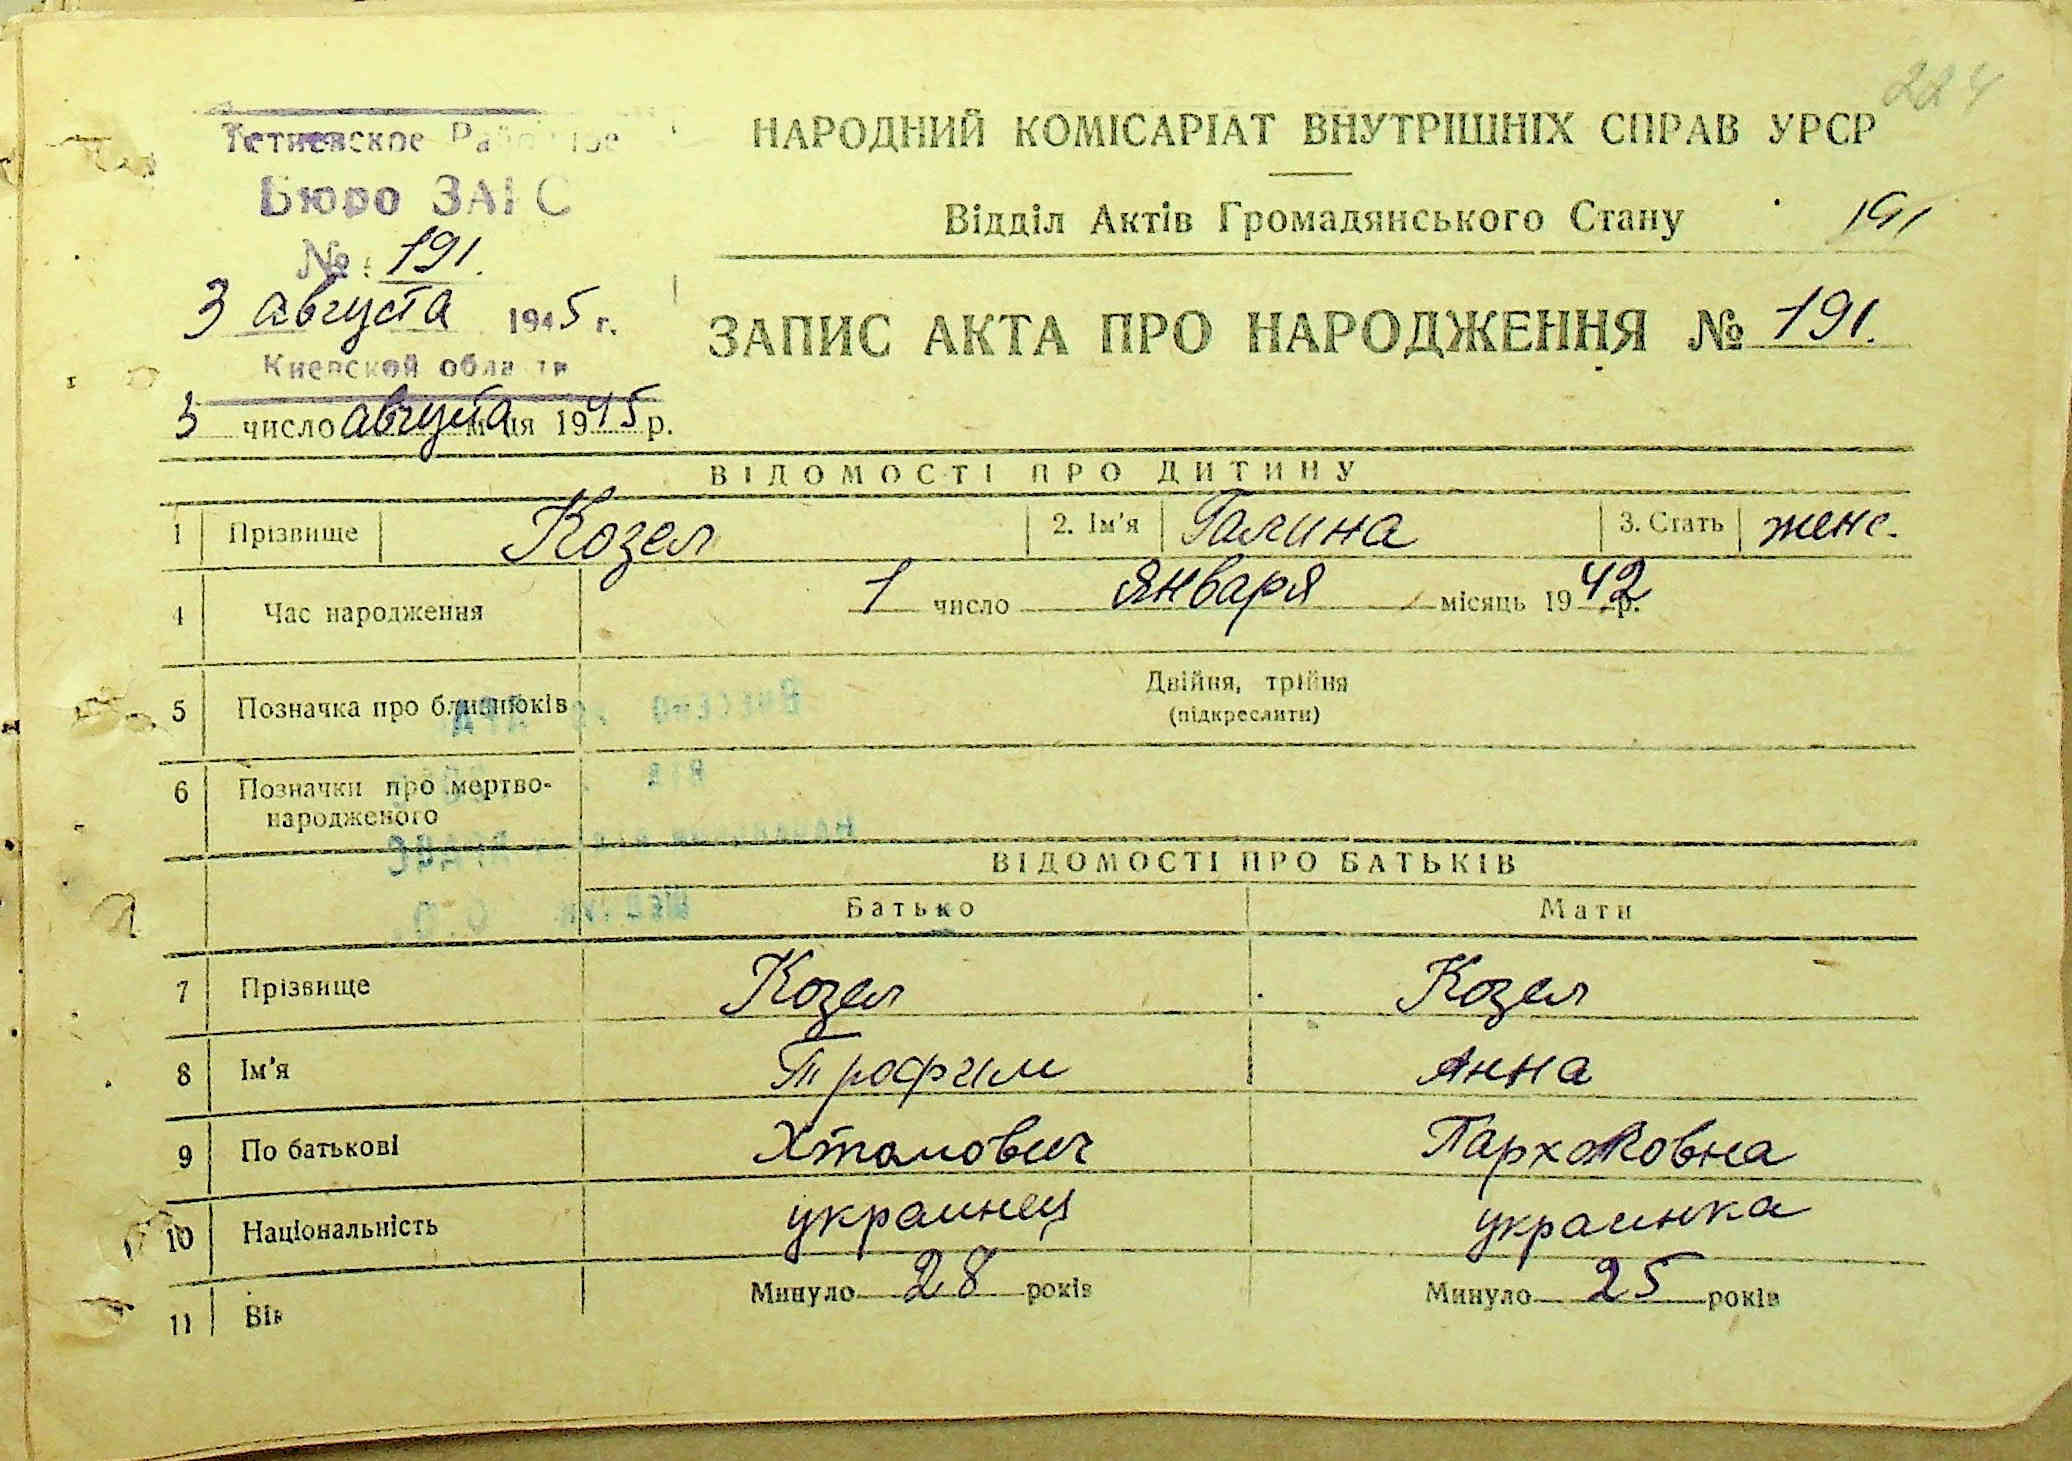 224
Тетиевское Районное
Бюро ЗАГС
№ 191.
3 августа 1945 г.
Киевской области
3 число августа м-ця 1945 р.
НАРОДНИЙ КОМІСАРІАТ ВНУТРІШНІХ СПРАВ УРСР
Відділ Актів Громадянського Стану 191
ЗАПИС АКТА ПРО НАРОДЖЕННЯ № 191.
ВІДОМОСТІ ПРО ДИТИНУ
1 Прізвище Козел 2. Ім'я Галина 3. Стать женс.
4 Час народження 1 число января місяць 1942 р.
5 Позначка про близнюків Двійня, трійня
(підкреслити)
6 Позначки про мертво-
народженого
ВІДОМОСТІ ПРО БАТЬКІВ
Батько Мати
7 Прізвище Козел Козел
8 Ім'я Трофим Анна
9 По батькові
10 Національність украинец украинка
11 Вік Минуло 28 років Минуло 25 років